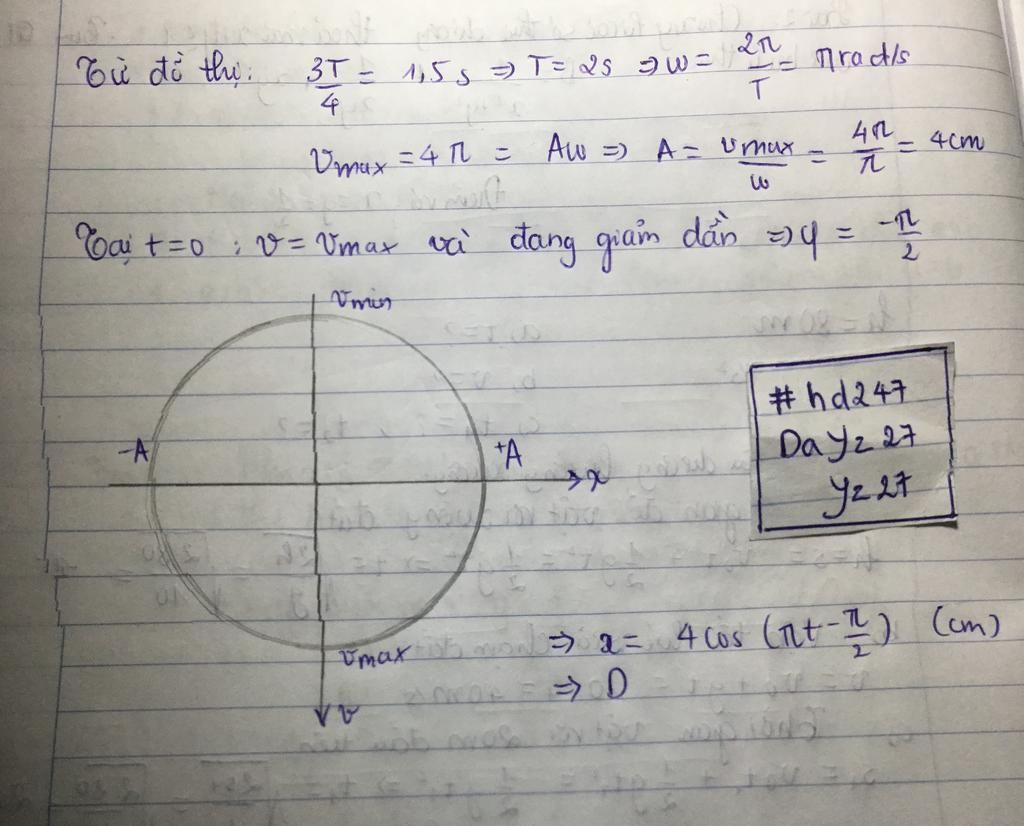 Từ đồ thị: 3T/4 = 1,5s ⇒ T = 2s ⇒ w = 2π/T = π rad/s
vmax = 4π = Aw ⇒ A = vmax/w = 4π/π = 4cm
Tại t=0 : v = vmax và đang giảm dần ⇒ φ = -π/2
vmin
-A
+A
x
#hd247
Dayz27
yz27
vmax
v
⇒ x = 4cos (πt - π/2) (cm)
⇒ D